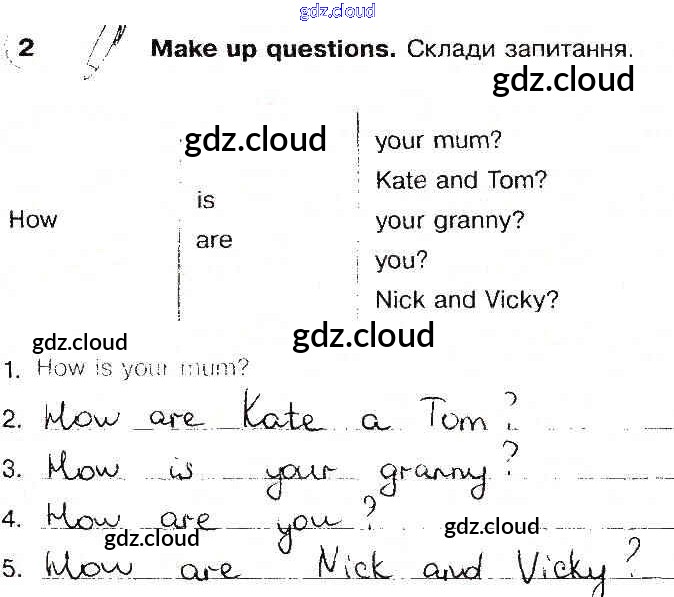 gdz.cloud
2 Make up questions. Склади запитання.
gdz.cloud
gdz.cloud
your mum?
Kate and Tom?
is
How
your granny?
are
you?
Nick and Vicky?
gdz.cloud
gdz.cloud
1. How is your mum?
2. How are Kate a Tom?
3. How is your granny?
4. How are you?
gdz.cloud
gdz.cloud
5. How are Nick and Vicky?